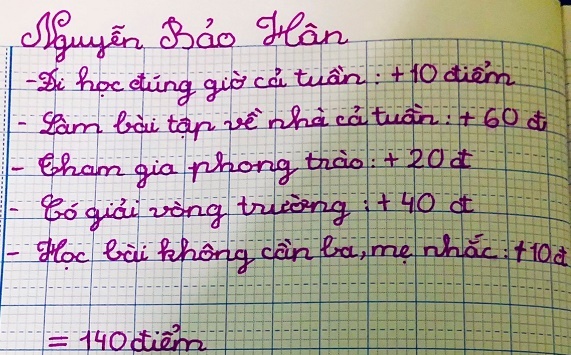 Nguyễn Bảo Hân
- Đi học đúng giờ cả tuần : +10 điểm
- Làm bài tập về nhà cả tuần : + 60 đ
- Tham gia phong trào : + 20 đ
- Có giải vòng trường : + 40 đ
- Học bài không cần ba, mẹ nhắc : +10 đ
= 140 điểm